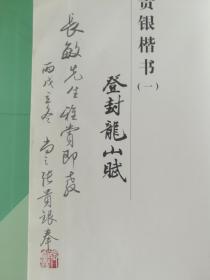 贡银楷书
(一)
登封龍山賦
長敏先生雅賞即教
丙戌立冬 尚之張貴銀奉